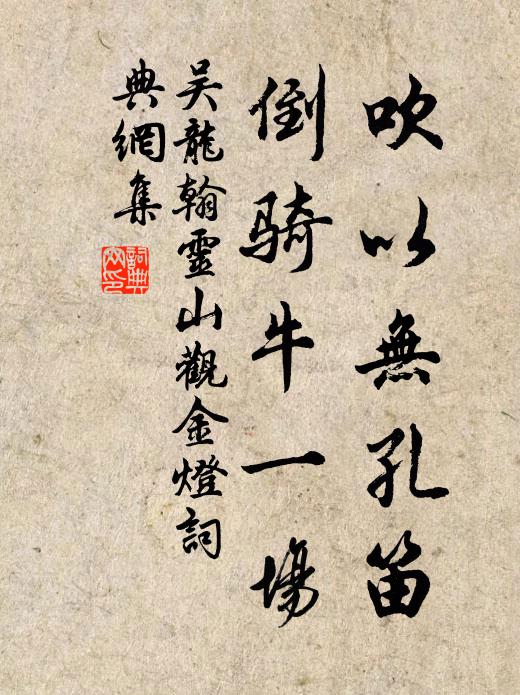 吹以無孔笛
倒騎牛一場
吴龍翰靈山觀金燈詞
典網集
詞典網印